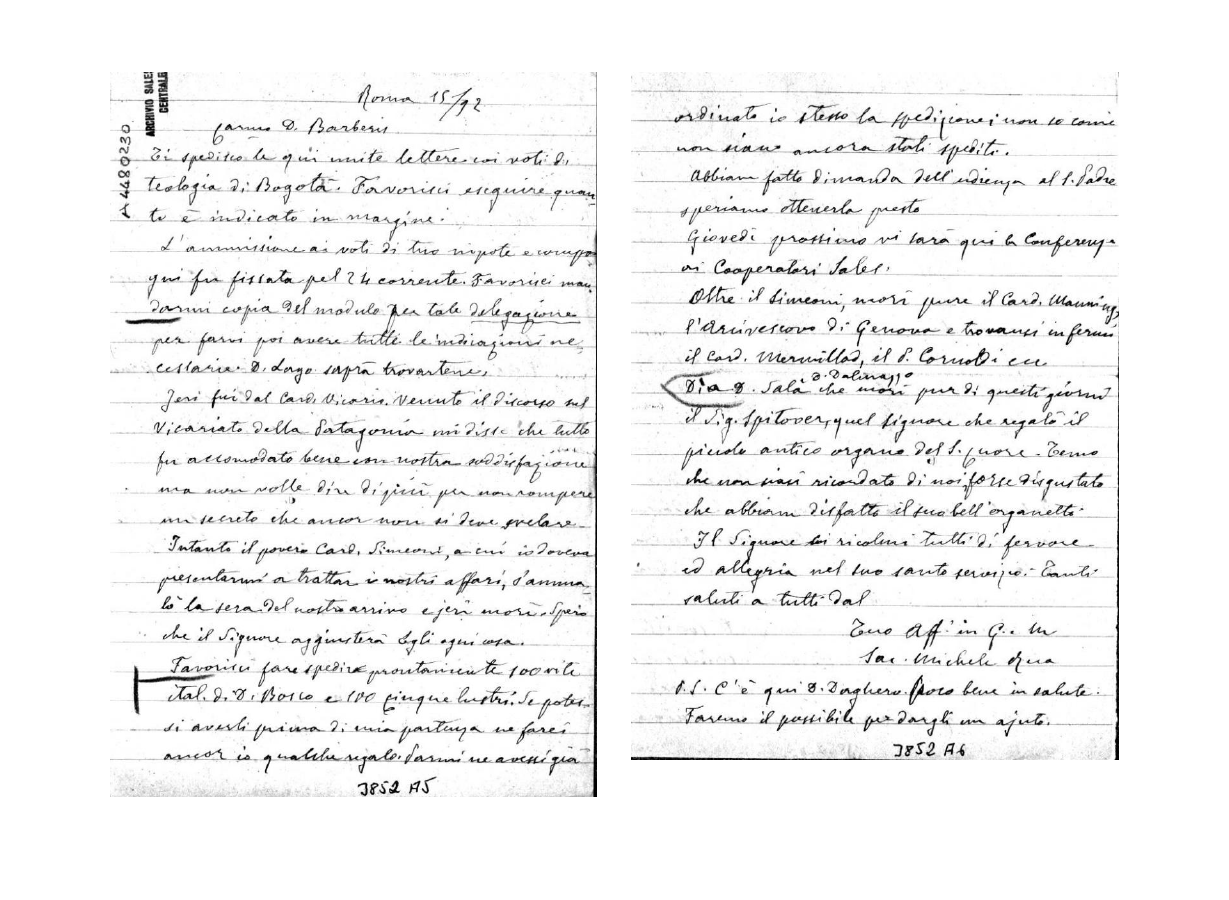 ARCHIVIO SALES
CENTRALE
A4480230
Roma 15/92
Carmo D. Barberis
Ti spedisco le qui unite lettere coi voti di
teologia di Bogotà. Favorisci eseguire quan
to è indicato in margine.
L'ammissione ai voti di tuo nipote e compa
qui fu fissata pel 24 corrente. Favorisci man
darmi copia del modulo per tale delegazione
per farvi poi avere tutte le indicazioni ne
cessarie. D. Lago saprà trovartene.
Jeri fui dal Card. Vicario. Venuto il discorso sul
Vicariato della Patagonia mi disse che tutto
fu accomodato bene con nostra soddisfazione
ma non volle dire di più per non rompere
un secreto che ancor non si deve svelare.
Intanto il povero Card. Simeoni, a cui io doveva
presentarmi a trattar i nostri affari, s'amma-
lò la sera del nostro arrivo e jeri morì. Spero
che il Signore aggiusterà Egli ogni cosa.
Favorisci fare spedire prontamente 100 vite
ital. di D. Bosco e 100 Cinque lustri. Se potes-
si averli prima di mia partenza ne farei
ancor io qualche regalo. Parmi ne avessi già
J852 A5
ordinato io stesso la spedizione; non so come
non siano ancora stati spediti.
Abbiam fatto dimanda dell'udienza al S. Padre
speriamo ottenerla presto
Giovedì prossimo vi sarà qui la Conferenza
ai Cooperatori Sales.
Oltre il Simeoni, morì pure il Card. Manning,
l'Arcivescovo di Genova e trovansi infermi
il Card. Mermillod, il P. Cornoldi ecc
D. Dalmazzo
Di a D. Sala che morì pur di questi giorni
il Sig. Spitover, quel signore che regalò il
piccolo antico organo del S. Cuore. Temo
che non siasi ricordato di noi forse disgustato
che abbiam disfatto il suo bell'organetto.
Il Signore ci ricolmi tutti di fervore
ed allegria nel suo santo servizio. Tanti
saluti a tutti dal
Tuo Aff. in G. e M
Sac. Michele Rua
P.S. C'è qui D. Daghero poco bene in salute.
Faremo il possibile per dargli un ajuto.
J852 A6